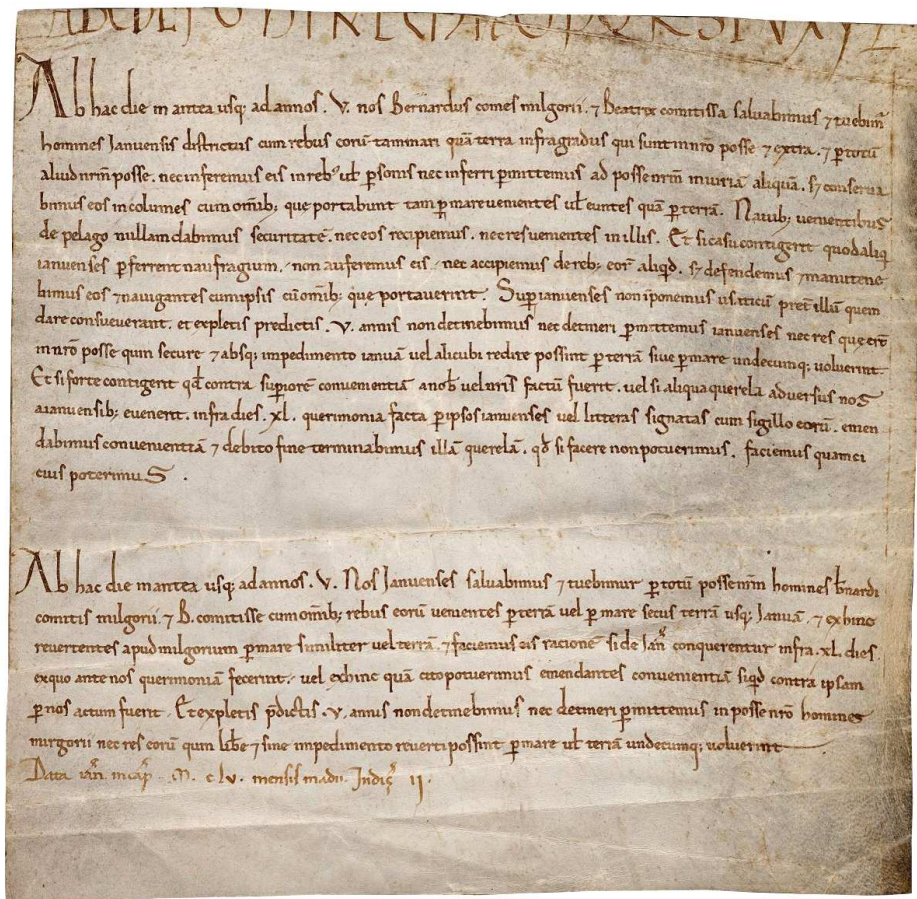 ABCDEFGHIKLMNOPQRSTVXYZ
Ab hac die in antea usq; ad annos. V. nos Bernardus comes milgorii. ⁊ Beatrix comitissa salvabimus ⁊ tuebim̄
homines Januensis districtus cum rebus eorū tam mari quā terra infra gradus qui sunt in nr̄o posse ⁊ extra. ⁊ p totū
aliud nr̄m posse. nec inferemus eis in reb; ul̄ psonis nec inferri pmittemus ad posse nr̄m iniuriā aliquā. s; conserva
bimus eos incolumes cum omib; que portabunt tam p mare venientes ul̄ euntes quā p terrā. Navib; venientibus
de pelago nullam dabimus securitatē. nec eos recipiemus. nec res venientes in illis. Et si casu contigerit quod aliq
ianuenses pferrent naufragium. non auferemus eis nec accipiemus de reb; eor̄ aliqd. s; defendemus ⁊ manutene
bimus eos ⁊ navigantes cum ipsis cū omib; que portaverint. Sup ianuenses non īponemus usaticū pret illū quem
dare consueverant. et expletis predictis. V. annis non detinebimus nec detineri pmittemus ianuenses nec res que erūt
in nr̄o posse quin secure ⁊ absq; impedimento ianuā vel alicubi redire possint p terrā sive p mare undecumq; voluerint.
Et si forte contigerit qd̄ contra supiorē convenientiā a nob̄ vel nr̄is factū fuerit. vel si aliqua querela adversus nos
a ianuensib; evenerit. infra dies. xl. querimonia facta p ipsos ianuenses vel litteras signatas cum sigillo eorū. emen
dabimus convenientiā ⁊ debito fine terminabimus illā querelā. qd̄ si facere non potuerimus. faciemus quam ci
cius poterimuS.
Ab hac die in antea usq; ad annos. V. Nos Januenses salvabimus ⁊ tuebimur p totū posse nr̄m homines b̄nardi
comitis milgorii. ⁊ B. comitisse cum omib; rebus eorū venientes p terrā vel p mare secus terrā usq; Januā. ⁊ exhinc
revertentes apud milgorium p mare similiter vel terrā. ⁊ faciemus eis racionē si de Jan̄ conquerentur infra. xl. dies
ex quo ante nos querimoniā fecerint. vel exhinc quā cito potuerimus emendantes convenientiā siqd contra ipsam
p nos actum fuerit. Et expletis p̄dictis. V. annis non detinebimus nec detineri pmittemus in posse nr̄o homines
mirgorii nec res eorū quin libe ⁊ sine impedimento reverti possint p mare ul̄ terrā undecumq; voluerint
Data ian̄ in cap̄. M. c lv. mensis madii. Indic̄ ij.